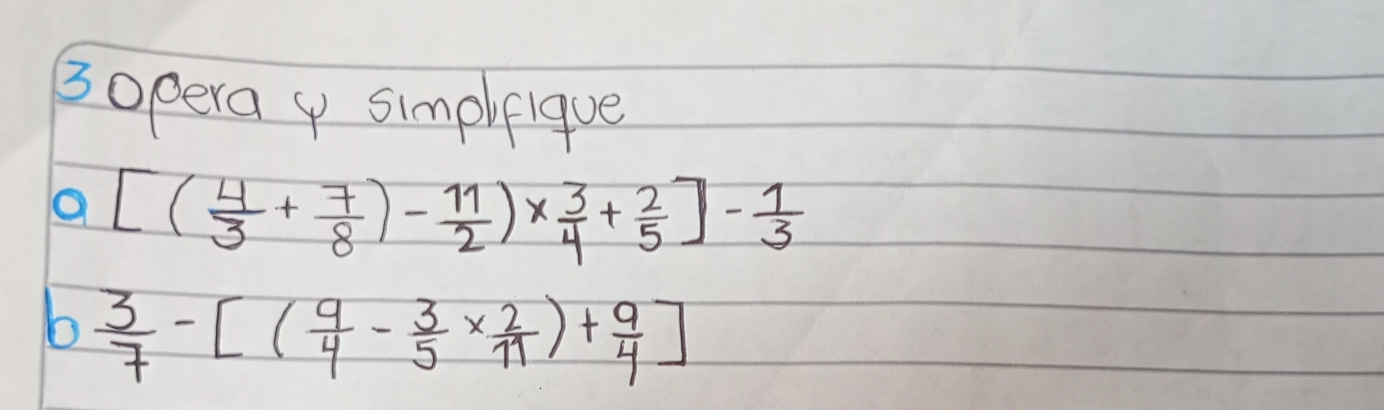 3 Opera y simplifique
a [ ( 4/3 + 7/8 ) - 11/2 ) × 3/4 + 2/5 ] - 1/3
b 3/7 - [ ( 9/4 - 3/5 × 2/11 ) + 9/4 ]